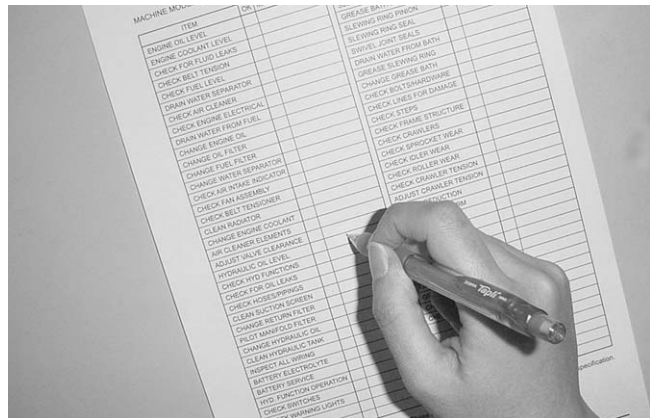 MACHINE MODE
ITEM
OK
ENGINE OIL LEVEL
ENGINE COOLANT LEVEL
CHECK FOR FLUID LEAKS
CHECK BELT TENSION
CHECK FUEL LEVEL
DRAIN WATER SEPARATOR
CHECK AIR CLEANER
CHECK ENGINE ELECTRICAL
DRAIN WATER FROM FUEL
CHANGE ENGINE OIL
CHANGE OIL FILTER
CHANGE FUEL FILTER
CHANGE WATER SEPARATOR
CHECK AIR INTAKE INDICATOR
CHECK FAN ASSEMBLY
CHECK BELT TENSIONER
CLEAN RADIATOR
CHANGE ENGINE COOLANT
AIR CLEANER ELEMENTS
ADJUST VALVE CLEARANCE
HYDRAULIC OIL LEVEL
CHECK HYD FUNCTIONS
CHECK FOR OIL LEAKS
CHECK HOSES/PIPINGS
CLEAN SUCTION SCREEN
CHANGE RETURN FILTER
PILOT MANIFOLD FILTER
CHANGE HYDRAULIC OIL
CLEAN HYDRAULIC TANK
INSPECT ALL WIRING
BATTERY ELECTROLYTE
BATTERY SERVICE
HYD. FUNCTION OPERATION
CHECK SWITCHES
WARNING LIGHTS
GREASE BATH
SLEWING RING PINION
SLEWING RING SEAL
SWIVEL JOINT SEALS
DRAIN WATER FROM BATH
GREASE SLEWING RING
CHANGE GREASE BATH
CHECK BOLTS/HARDWARE
CHECK LINES FOR DAMAGE
CHECK STEPS
CHECK FRAME STRUCTURE
CHECK CRAWLERS
CHECK SPROCKET WEAR
CHECK IDLER WEAR
CHECK ROLLER WEAR
CHECK CRAWLER TENSION
ADJUST CRAWLER TENSION
specification.